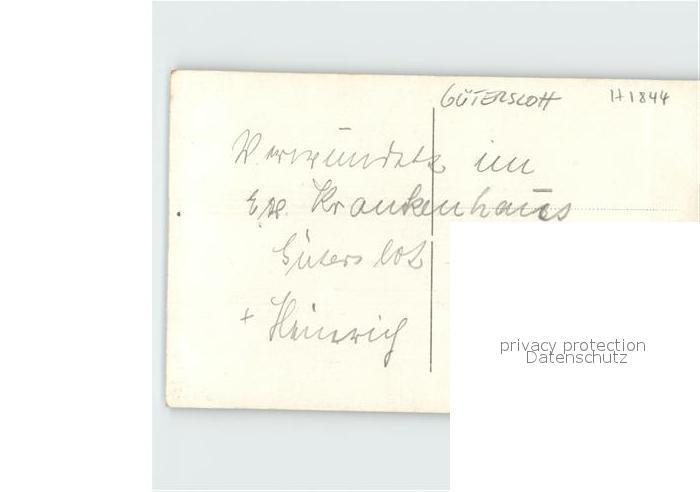 GÜTERSLOH H1844
Verwundete im
Ev. Krankenhaus
Güterslot
+ Heinrich
privacy protection
Datenschutz